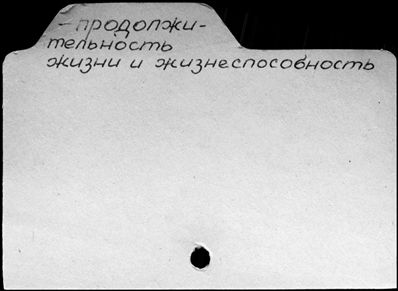 - продолжи-
тельность
жизни и жизнеспособность